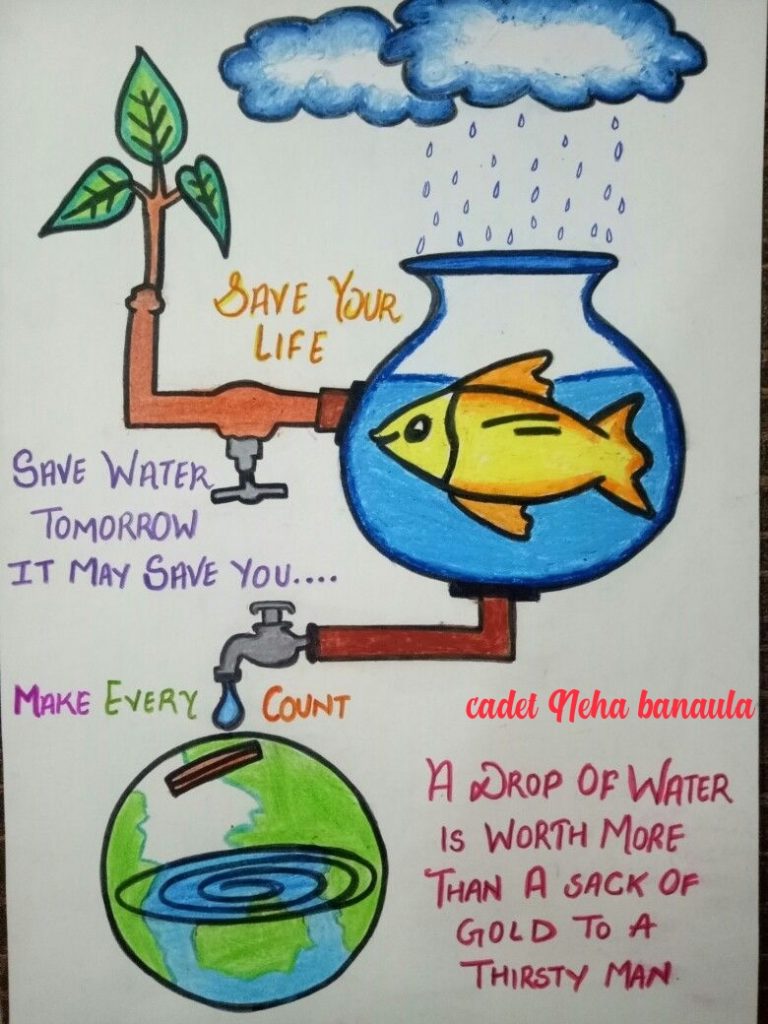 SAVE YOUR
LIFE
SAVE WATER
TOMORROW
IT MAY SAVE YOU....
MAKE EVERY COUNT
cadet Neha banaula
A DROP OF WATER
IS WORTH MORE
THAN A SACK OF
GOLD TO A
THIRSTY MAN